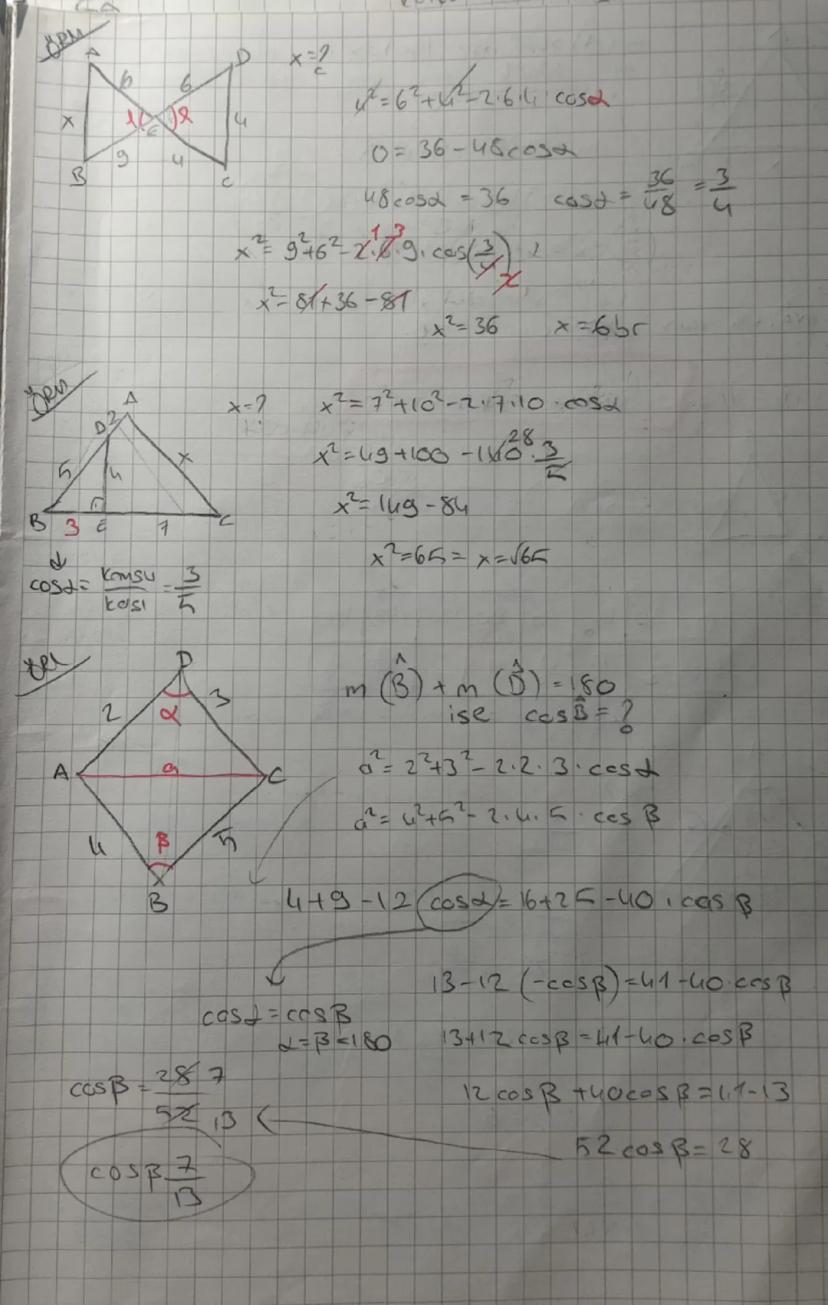 ÖRN
A D x=?
6 6
x 4
E
9 4
B C
4²=6²+4²-2·6·4·cosα
0=36-48cosα
48cosα=36 cosα=36/48=3/4
x²=9²+6²-2·6·9·cos(3/4)
1 3
2
x²=81+36-81
x²=36 x=6br
ÖRN
A x=?
D 2
5 4 x
B 3 E 7 C
cosα=komşu/kosi=3/5
x²=7²+10²-2·7·10·cosα
x²=49+100-140·3/5
28
x²=149-84
x²=65=x=√65
ÖRN
D
2 α 3
A a C
4 β 5
B
m(B̂)+m(D̂)=180
ise cosB̂=?
a²=2²+3²-2·2·3·cosα
a²=4²+5²-2·4·5·cosβ
4+9-12 cosα=16+25-40·cosβ
13-12(-cosβ)=41-40·cosβ
cosα=cosβ
α=β=180
13+12cosβ=41-40·cosβ
12cosβ+40cosβ=41-13
52cosβ=28
cosβ=28/52
7
13
cosβ 7/13